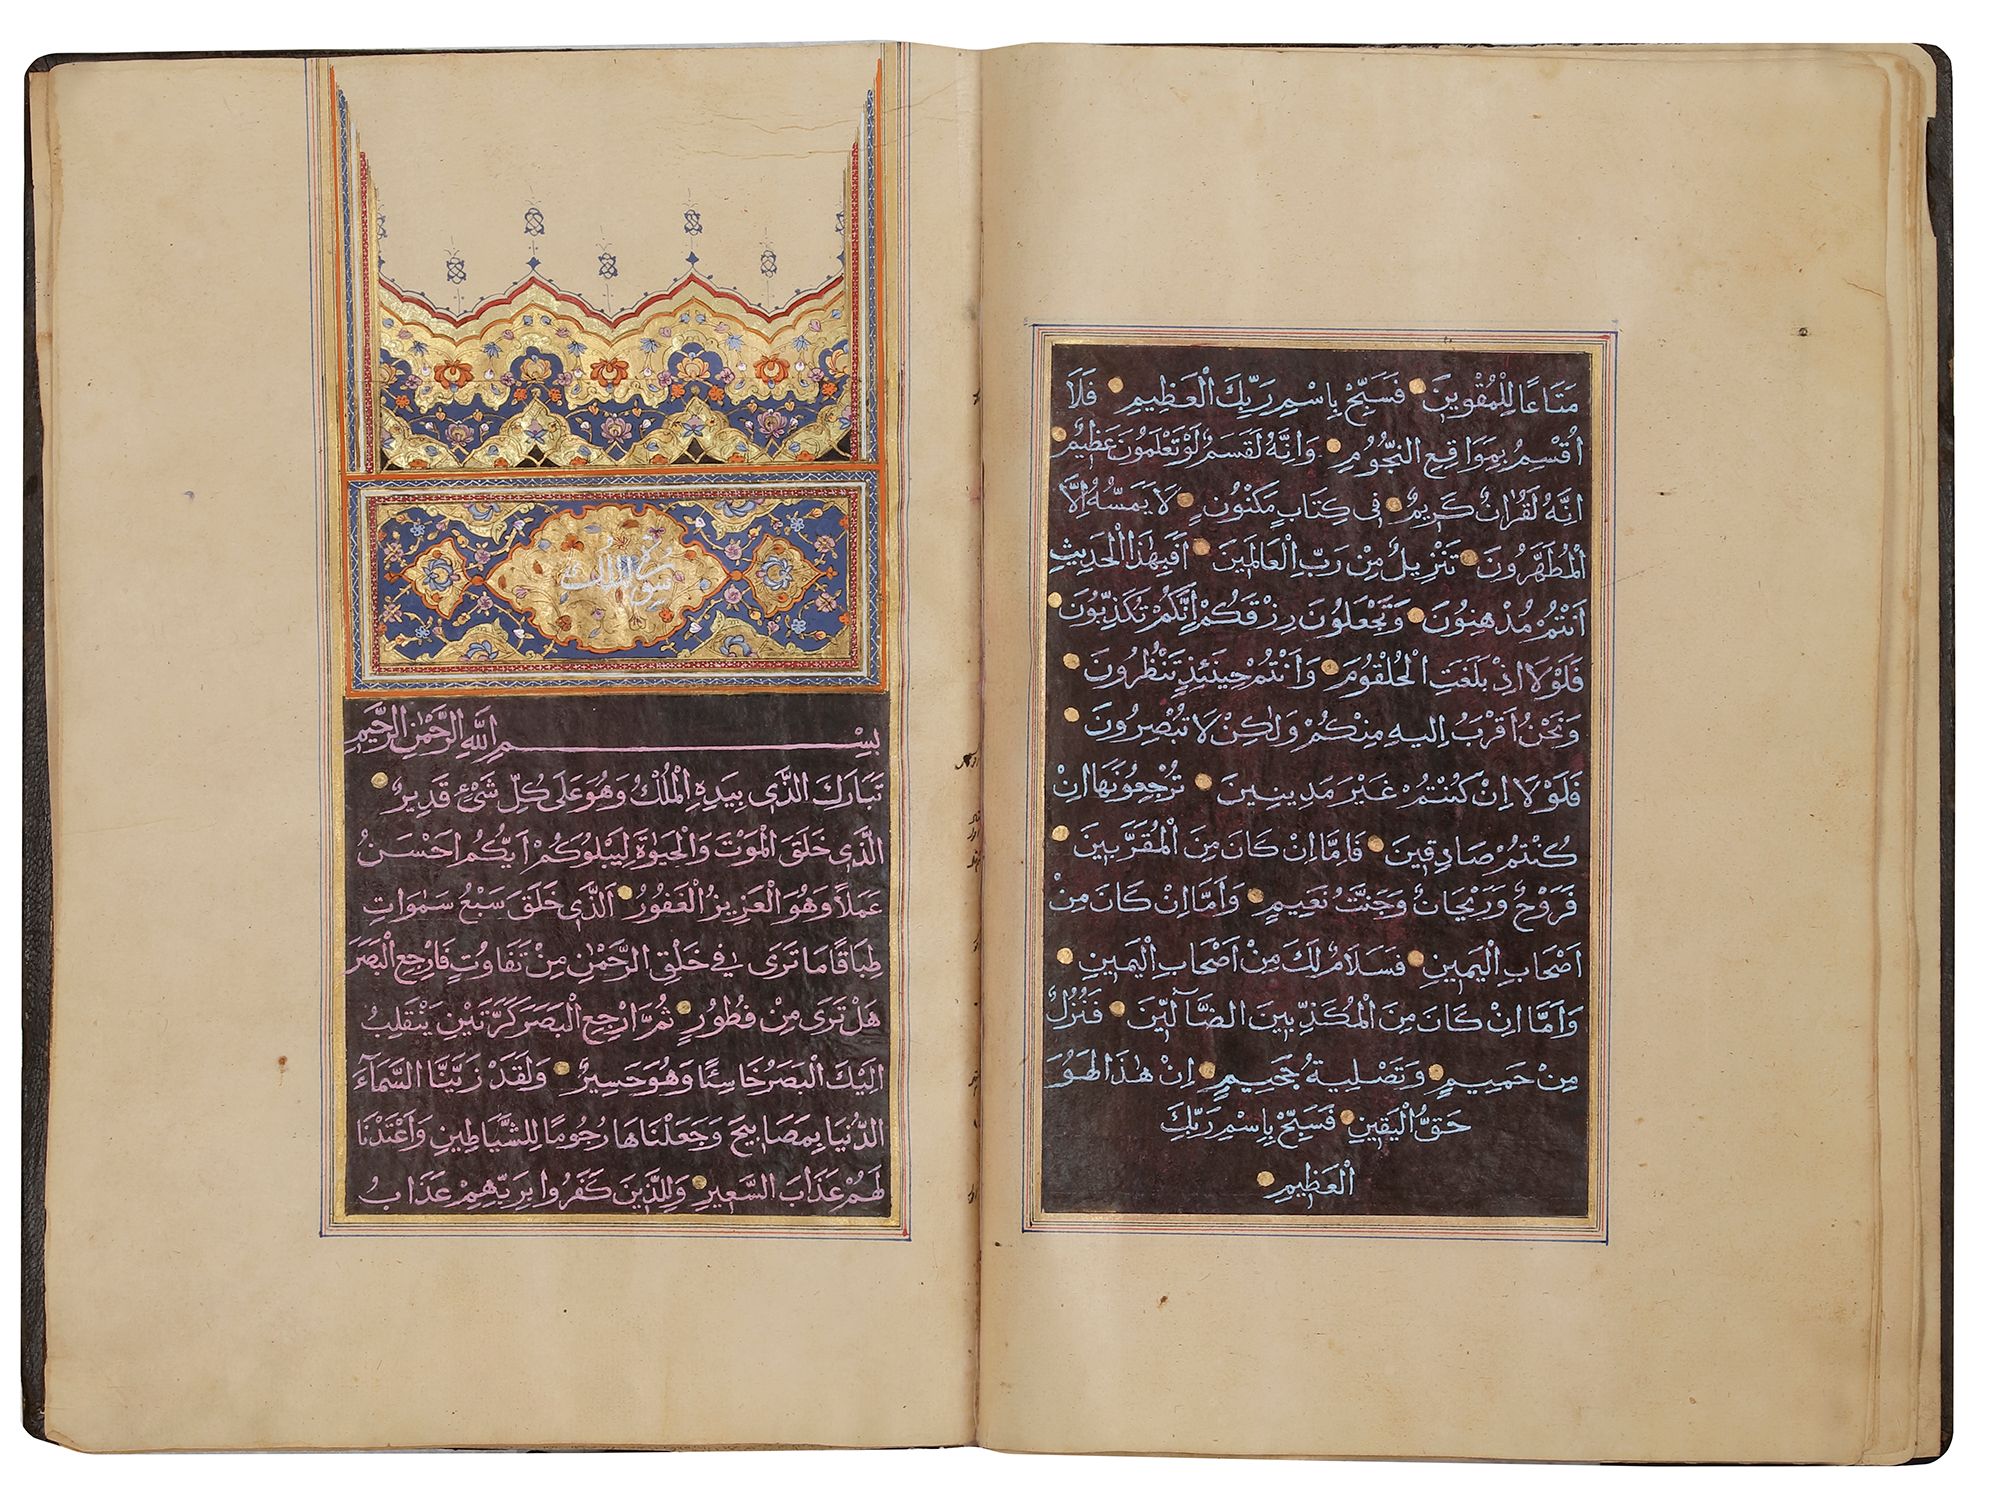 مَتَاعًا لِلْمُقْوِينَ فَسَبِّحْ بِاسْمِ رَبِّكَ الْعَظِيمِ فَلَا
اُقْسِمُ بِمَوَاقِعِ النُّجُومِ وَاِنَّهُ لَقَسَمٌ لَوْ تَعْلَمُونَ عَظِيمٌ
اِنَّهُ لَقُرْاٰنٌ كَرِيمٌ فِي كِتَابٍ مَكْنُونٍ لَا يَمَسُّهُ اِلَّا
الْمُطَهَّرُونَ تَنْزِيلٌ مِنْ رَبِّ الْعَالَمِينَ اَفَبِهٰذَا الْحَدِيثِ
اَنْتُمْ مُدْهِنُونَ وَتَجْعَلُونَ رِزْقَكُمْ اَنَّكُمْ تُكَذِّبُونَ
فَلَوْلَا اِذْ بَلَغَتِ الْحُلْقُومَ وَاَنْتُمْ حِينَئِذٍ تَنْظُرُونَ
وَنَحْنُ اَقْرَبُ اِلَيْهِ مِنْكُمْ وَلٰكِنْ لَا تُبْصِرُونَ
فَلَوْلَا اِنْ كُنْتُمْ غَيْرَ مَدِينِينَ تَرْجِعُونَهَا اِنْ
كُنْتُمْ صَادِقِينَ فَاَمَّا اِنْ كَانَ مِنَ الْمُقَرَّبِينَ
فَرَوْحٌ وَرَيْحَانٌ وَجَنَّتُ نَعِيمٍ وَاَمَّا اِنْ كَانَ مِنْ
اَصْحَابِ الْيَمِينِ فَسَلَامٌ لَكَ مِنْ اَصْحَابِ الْيَمِينِ
وَاَمَّا اِنْ كَانَ مِنَ الْمُكَذِّبِينَ الضَّآلِّينَ فَنُزُلٌ
مِنْ حَمِيمٍ وَتَصْلِيَةُ جَحِيمٍ اِنَّ هٰذَا لَهُوَ
حَقُّ الْيَقِينِ فَسَبِّحْ بِاسْمِ رَبِّكَ
الْعَظِيمِ
سورة الملك
بِسْمِ اللّٰهِ الرَّحْمٰنِ الرَّحِيمِ
تَبَارَكَ الَّذِي بِيَدِهِ الْمُلْكُ وَهُوَ عَلَى كُلِّ شَيْءٍ قَدِيرٌ
الَّذِي خَلَقَ الْمَوْتَ وَالْحَيٰوةَ لِيَبْلُوَكُمْ اَيُّكُمْ اَحْسَنُ
عَمَلًا وَهُوَ الْعَزِيزُ الْغَفُورُ اَلَّذِي خَلَقَ سَبْعَ سَمٰوَاتٍ
طِبَاقًا مَا تَرَى فِي خَلْقِ الرَّحْمٰنِ مِنْ تَفَاوُتٍ فَارْجِعِ الْبَصَرَ
هَلْ تَرَى مِنْ فُطُورٍ ثُمَّ ارْجِعِ الْبَصَرَ كَرَّتَيْنِ يَنْقَلِبْ
اِلَيْكَ الْبَصَرُ خَاسِئًا وَهُوَ حَسِيرٌ وَلَقَدْ زَيَّنَّا السَّمَآءَ
الدُّنْيَا بِمَصَابِيحَ وَجَعَلْنَاهَا رُجُومًا لِلشَّيَاطِينِ وَاَعْتَدْنَا
لَهُمْ عَذَابَ السَّعِيرِ وَلِلَّذِينَ كَفَرُوا بِرَبِّهِمْ عَذَابُ